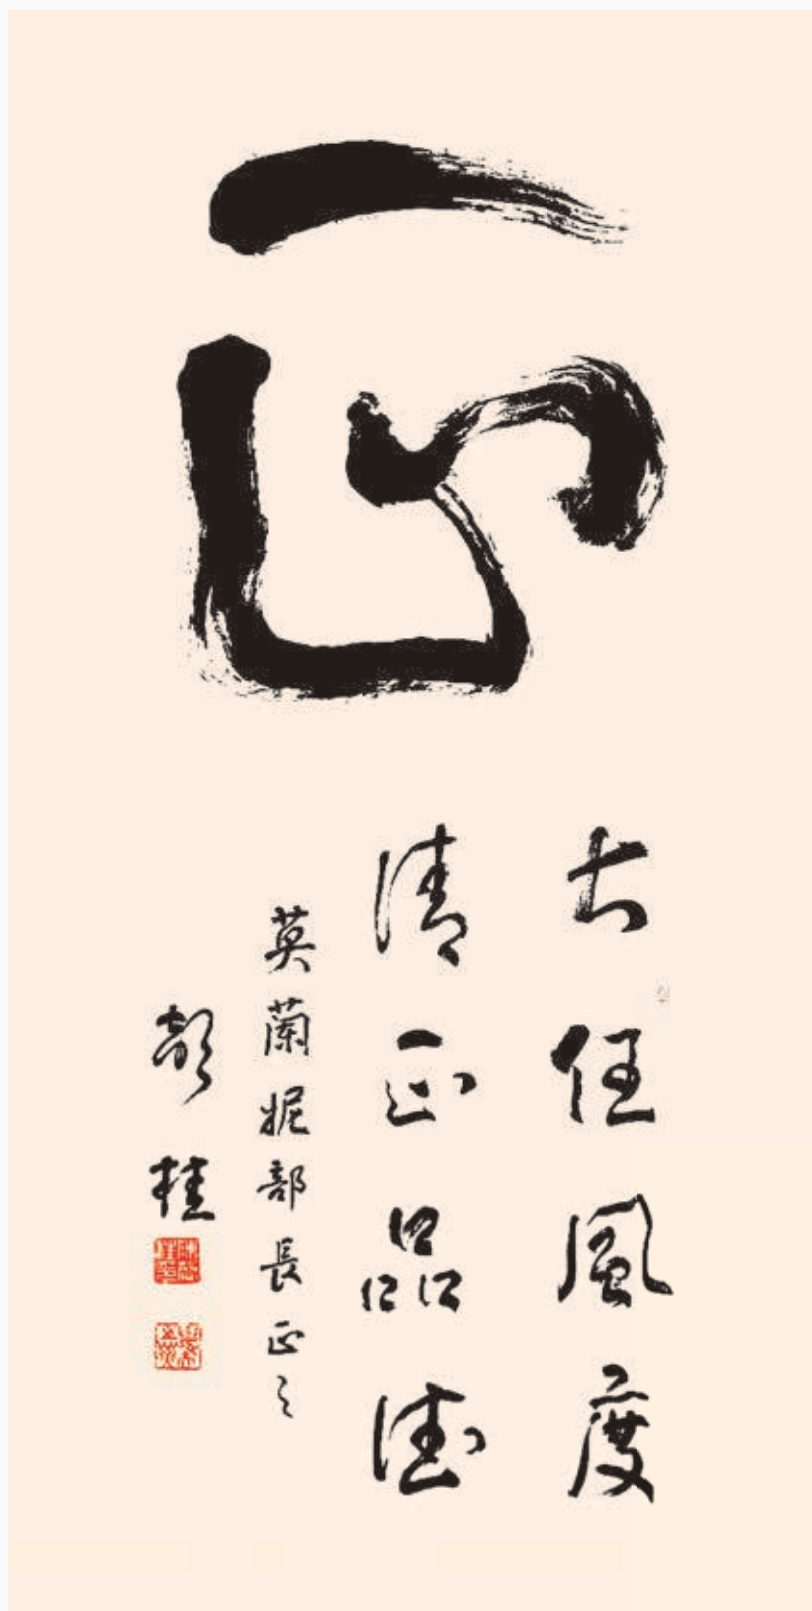 正
大任風度
清正品德
英蘭妮部長正之
桂